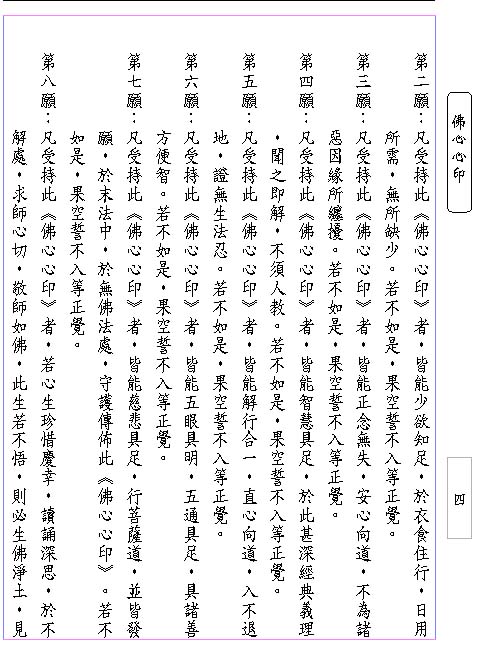 佛心心印
第二願：凡受持此《佛心心印》者，皆能少欲知足，於衣食住行，日用
所需，無所缺少。若不如是，果空誓不入等正覺。
第三願：凡受持此《佛心心印》者，皆能正念無失，安心向道，不為諸
惡因緣所纏擾。若不如是，果空誓不入等正覺。
第四願：凡受持此《佛心心印》者，皆能智慧具足，於此甚深經典義理
，聞之即解，不須人教。若不如是，果空誓不入等正覺。
第五願：凡受持此《佛心心印》者，皆能解行合一，直心向道，入不退
地，證無生法忍。若不如是，果空誓不入等正覺。
第六願：凡受持此《佛心心印》者，皆能五眼具明，五通具足，具諸善
方便智。若不如是，果空誓不入等正覺。
第七願：凡受持此《佛心心印》者，皆能慈悲具足，行菩薩道，並皆發
願，於末法中，於無佛法處，守護傳佈此《佛心心印》。若不
如是，果空誓不入等正覺。
第八願：凡受持此《佛心心印》者，若心生珍惜慶幸，讀誦深思，於不
解處，求師心切，敬師如佛，此生若不悟，則必生佛淨土，見
四